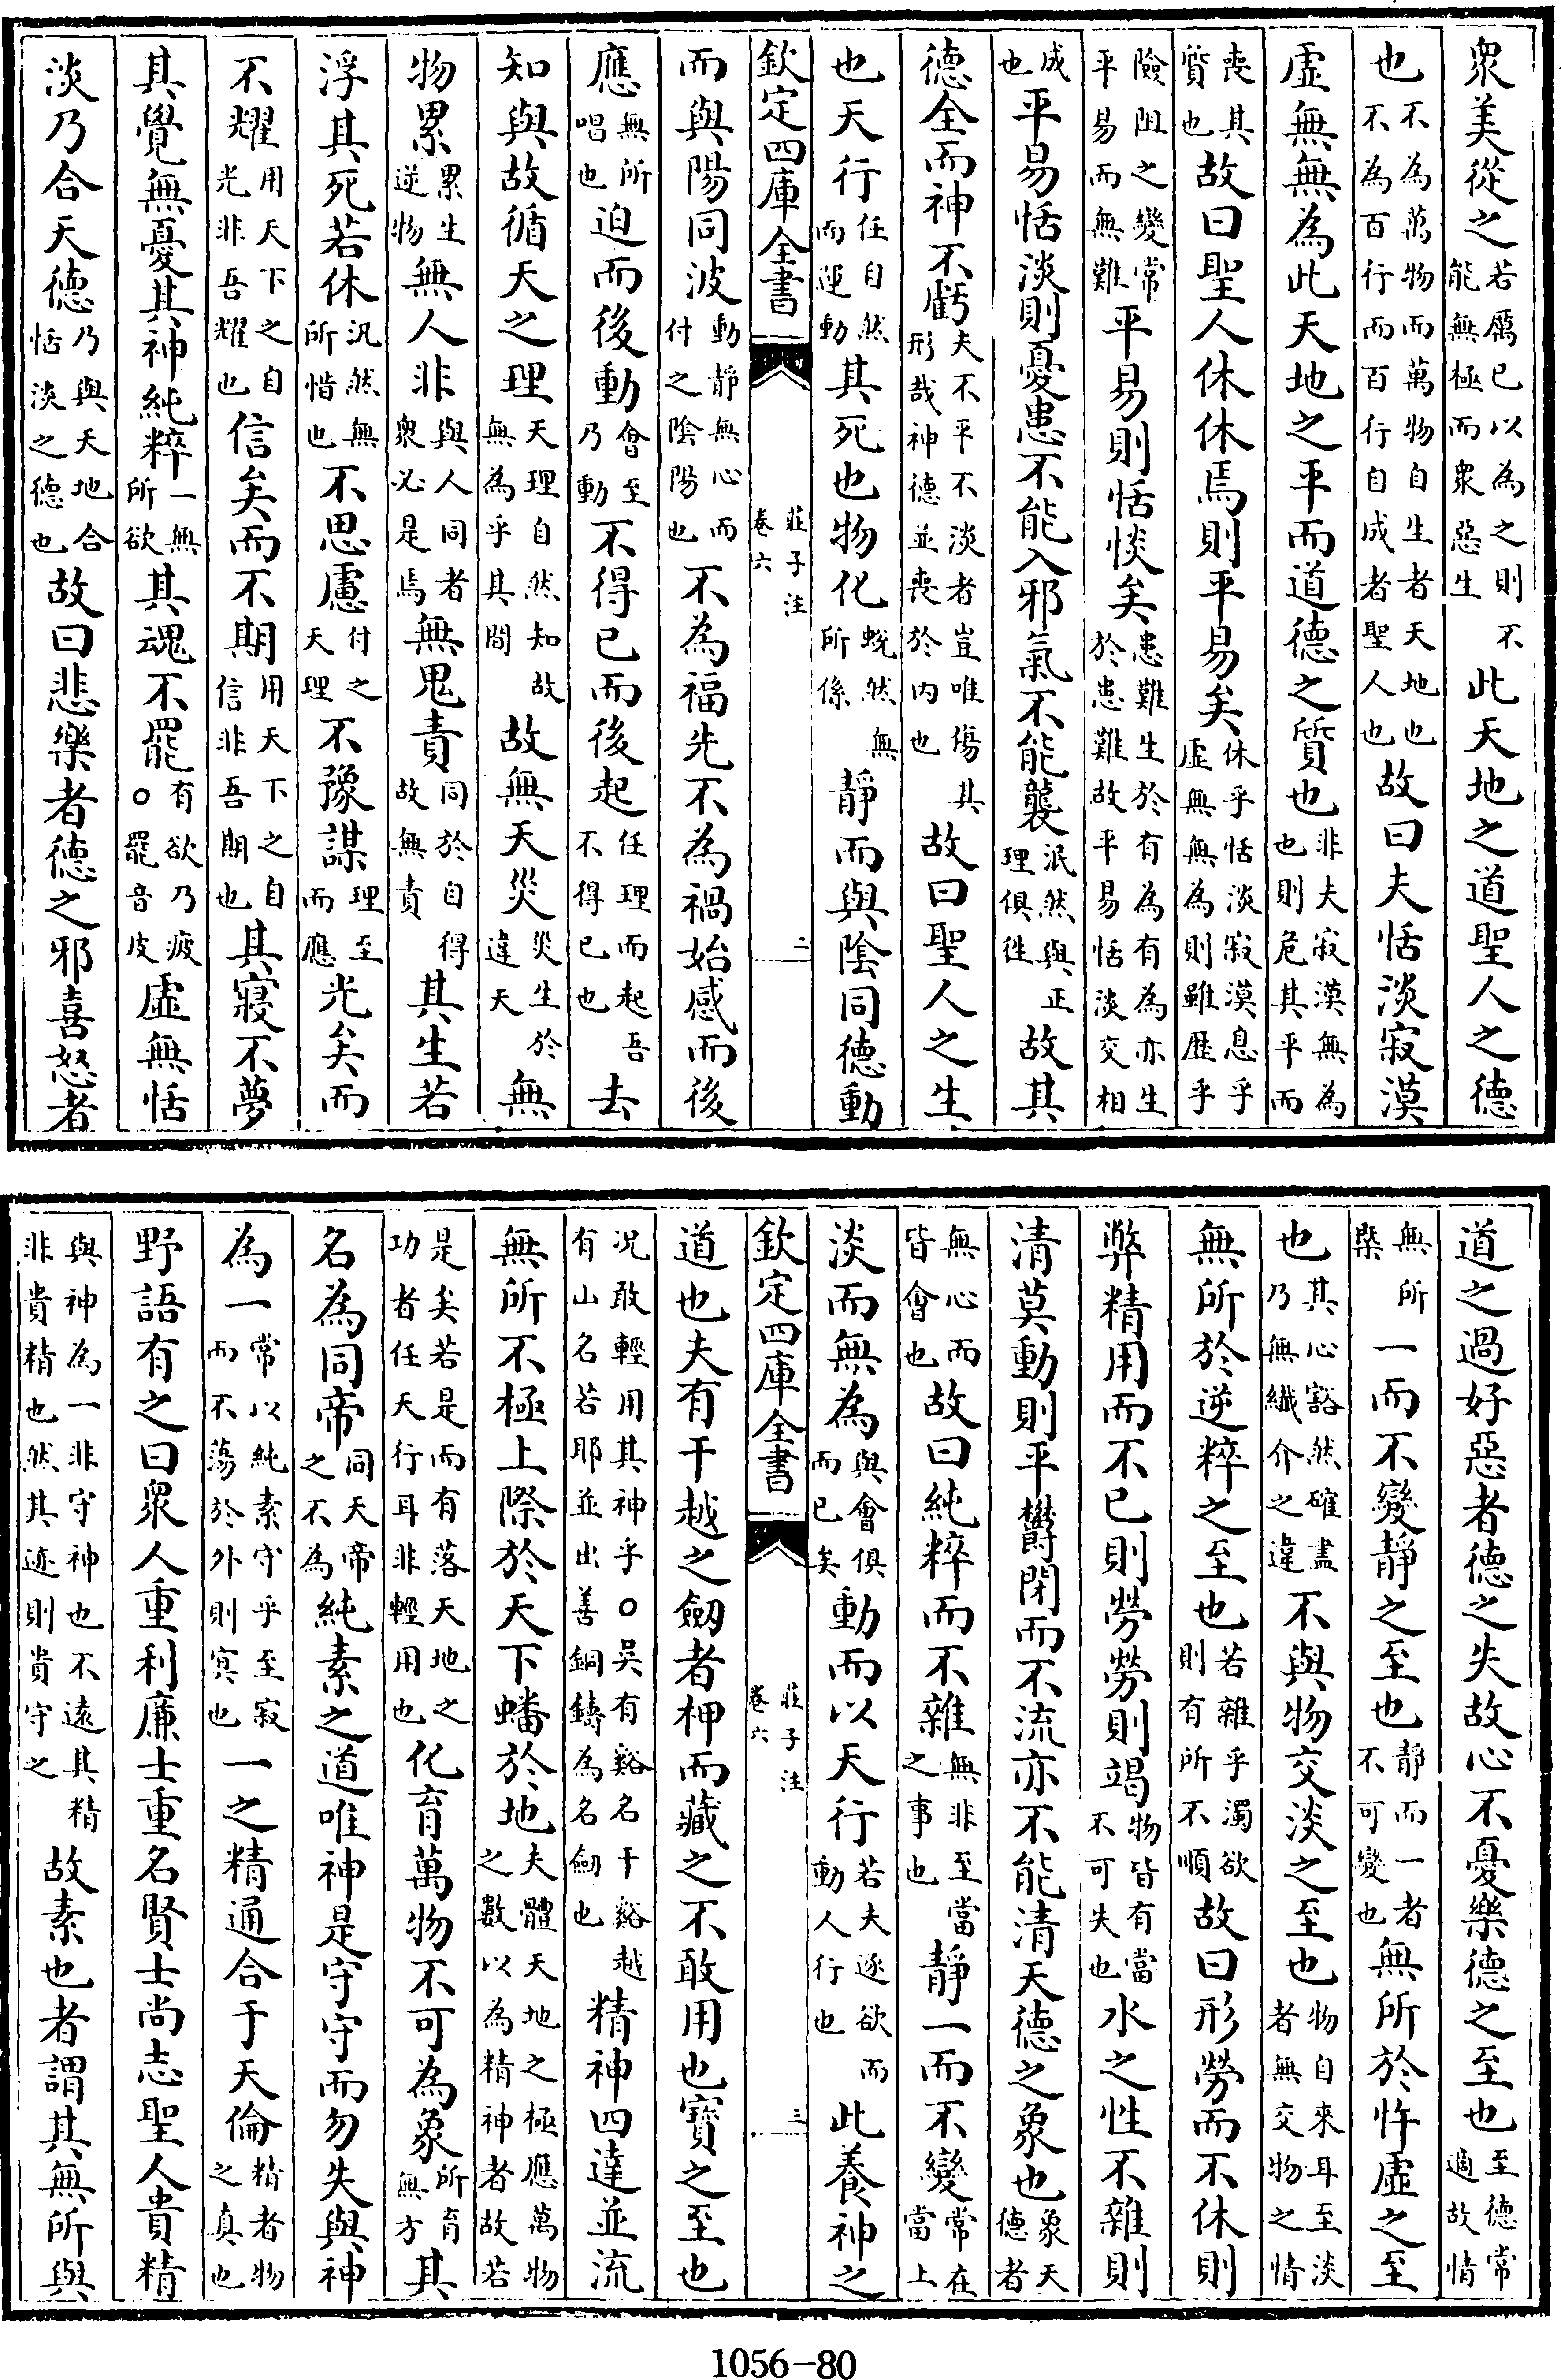 衆美從之若厲已以為之則不能無極而衆惡生此天地之道聖人之德
也不為萬物而萬物自生者天地也不為百行而百行自成者聖人也故曰夫恬淡寂漠
虛無無為此天地之平而道德之質也非夫寂漠無為也則危其平而
喪其質也故曰聖人休休焉則平易矣休乎恬淡寂漠息乎虛無無為則雖歷乎
險阻之變常平易而無難平易則恬惔矣患難生於有為有為亦生於患難故平易恬淡交相
成也平易恬淡則憂患不能入邪氣不能襲泯然與正理俱徃故其
德全而神不虧夫不平不淡者豈唯傷其形哉神德並喪於內也故曰聖人之生
也天行任自然而運動其死也物化蛻然無所係靜而與陰同德動
欽定四庫全書 莊子注 卷六 二
而與陽同波動靜無心而付之陰陽也不為福先不為禍始感而後
應無所唱也迫而後動會至乃動不得已而後起任理而起吾不得已也去
知與故循天之理天理自然知故無為乎其間故無天災災生於違天無
物累累生逆物無人非與人同者衆必是焉無鬼責同於自得故無責其生若
浮其死若休汎然無所惜也不思慮付之天理不豫謀理至而應光矣而
不耀用天下之自光非吾耀也信矣而不期用天下之自信非吾期也其寢不夢
其覺無憂其神純粹一無所欲其魂不罷有欲乃疲○罷音皮虛無恬
淡乃合天德乃與天地合恬淡之德也故曰悲樂者德之邪喜怒者
道之過好惡者德之失故心不憂樂德之至也至德常適故情
無所槩一而不變靜之至也靜而一者不可變也無所於忤虛之至
也其心豁然確盡乃無纎介之違不與物交淡之至也物自來耳至淡者無交物之情
無所於逆粹之至也若雜乎濁欲則有所不順故曰形勞而不休則
弊精用而不已則勞勞則竭物皆有當不可失也水之性不雜則
清莫動則平鬱閉而不流亦不能清天德之象也象天德者
無心而皆會也故曰純粹而不雜無非至當之事也靜一而不變常在當上
淡而無為與會俱而已矣動而以天行若夫逐欲而動人行也此養神之
欽定四庫全書 莊子注 卷六 三
道也夫有干越之劒者柙而藏之不敢用也寶之至也
况敢輕用其神乎○吳有谿名干谿越有山名若耶並出善銅鑄為名劒也精神四達並流
無所不極上際於天下蟠於地夫體天地之極應萬物之數以為精神者故若
是矣若是而有落天地之功者任天行耳非輕用也化育萬物不可為象所育無方其
名為同帝同天帝之不為純素之道唯神是守守而勿失與神
為一常以純素守乎至寂而不蕩於外則冥也一之精通合于天倫精者物之真也
野語有之曰衆人重利廉士重名賢士尚志聖人貴精
與神為一非守神也不遠其精非貴精也然其迹則貴守之故素也者謂其無所與
1056-80